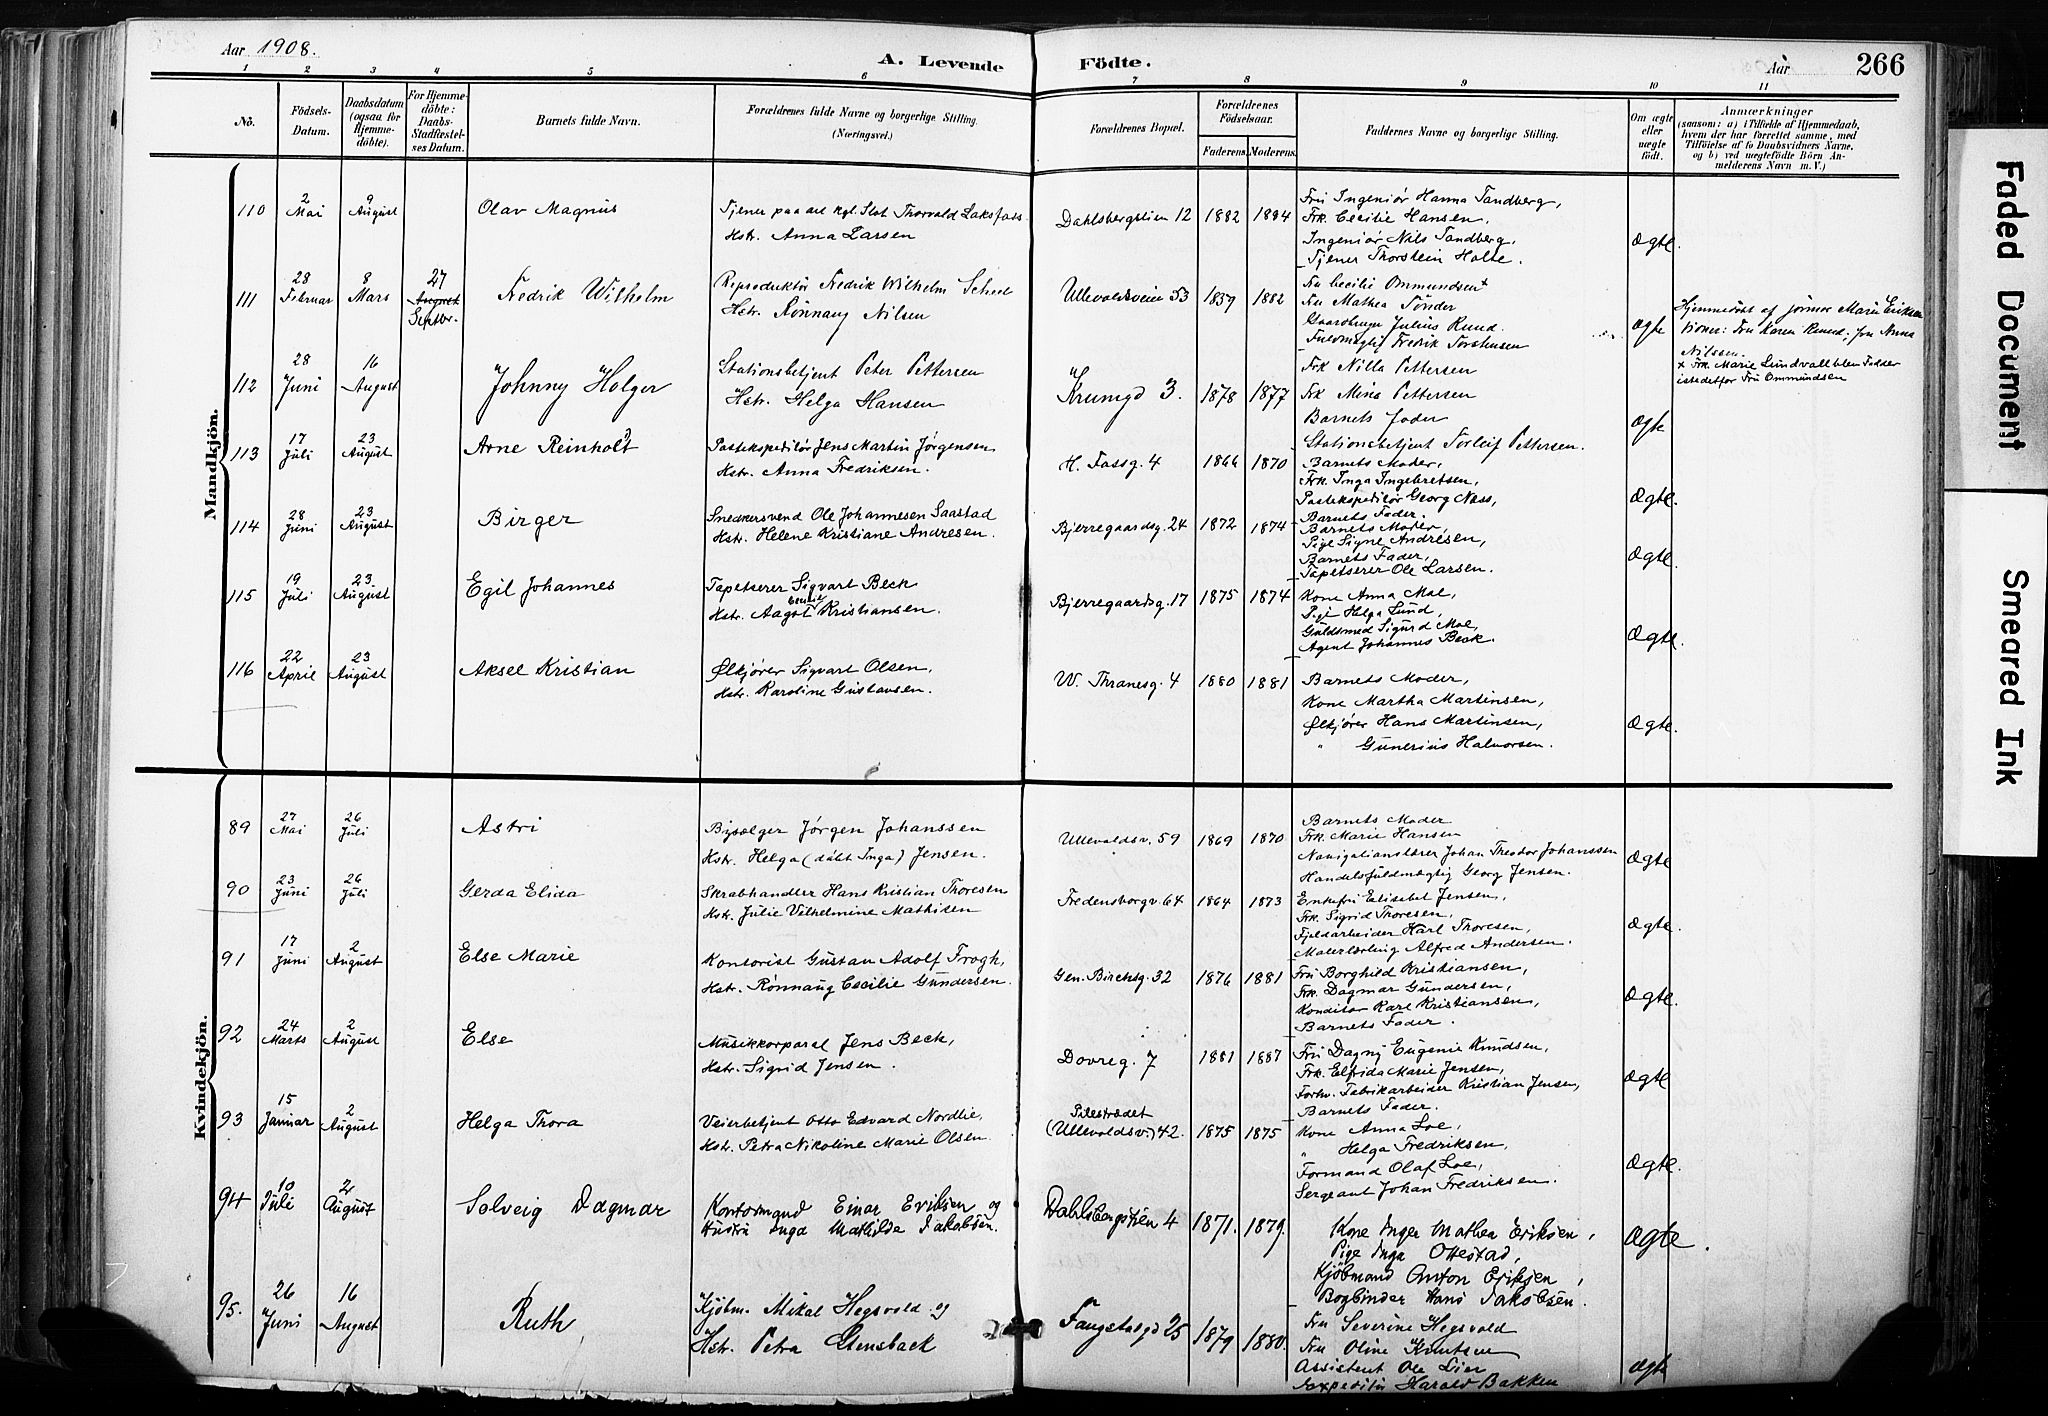 Aar 1908.
A. Levende Födte.
Aar
266
1 2 3 4 5 6 7 8 9 10 11
No.
Födsels-Datum.
Daabsdatum (ogsaa for Hjemme-döbte).
For Hjemme-döbte: Daabs-Stadfæstel-ses Datum.
Barnets fulde Navn.
Forældrenes fulde Navne og borgerlige Stilling. (Næringsvei.)
Forældrenes Bopæl.
Forældrenes Födselsaar.
Faderens. Moderens.
Faddernes Navne og borgerlige Stilling.
Om ægte eller uægte födt.
Anmærkninger
(saasom: a) i Tilfælde af Hjemmedaab,
hvem der har forrettet samme, med
Tilföielse af to Daabsvidners Navne,
og b) ved uægtefödte Börn An-
melderens Navn m. V.)
Mandkjön.
110 2 Mai 9 August Olav Magnus
Tjener paa det kgl. Slot Thorvald Laksfoss
Hstr. Anna Larsen
Dahlsbergstien 12 1882 1884
Fru Ingeniør Hanna Tandberg,
Frk. Cecilie Hansen,
Ingeniør Nils Tandberg,
Tjener Thorstein Holte.
Ægte.
111 28 Februar 8 Mars 27 August Septbr. Fredrik Wilhelm
Reproduktør Fredrik Wilhelm Scheel
Hstr. Rönnaug Nilsen
Ullevoldsveien 53 1839 1882
Fru Cecilie Ommundsen +
Fru Mathea Tönder
Gaardbruger Julius Ruud
Fuldmægtig Fredrik Torstensen
Ægte
Hjemmedöbt af jormor Marie Eriksen
Vidner: Fru Karen Ruud, Fru Anna
Nilssen.
+ Frk. Marie Lundvall blev Fadder
istedetfor Fru Ommundsen
112 28 Juni 16 August Johnny Holger
Stationsbetjent Peter Pettersen
Hstr. Helga Hansen
Krumgd 3. 1878 1877
Frk Nilla Pettersen
Frk Mina Pettersen
Barnets Fader
Stationsbetjent Torleif Pettersen.
Ægte
113 17 Juli 23 August Arne Reinholdt
Postekspeditör Jens Martin Jørgensen
Hstr. Anna Fredriksen.
H. Fossg. 4 1866 1870
Barnets Moder,
Frk. Inga Ingebretsen,
Postekspeditör Georg Næss,
Barnets Fader.
Ægte.
114 28 Juni 23 August Birger
Snedkersvend Ole Johannesen Saastad
Hstr. Helene Kristiane Andresen.
Bjerregaardsg. 24 1872 1874
Barnets Moder,
Pige Signe Andresen,
Barnets Fader,
Tapetserer Ole Larsen.
Ægte.
115 19 Juli 23 August Egil Johannes
Tapetserer Sigvart Beck
Hstr. Aagot Emilie Kristiansen.
Bjerregaardsg. 17 1875 1874
Kone Anna Moe,
Pige Helga Lund,
Guldsmed Sigurd Moe,
Agent Johannes Beck.
Ægte.
116 22 April 23 August Aksel Kristian
Ølkjörer Sigvart Olsen,
Hstr. Karoline Gustavsen.
W. Thranesg. 4 1880 1881
Barnets Moder,
Kone Martha Martinsen,
Ølkjører Hans Martinsen,
" Gunerius Halvorsen.
Ægte.
Kvindekjön.
89 27 Mai 26 Juli Astri
Bysælger Jørgen Johanssen
Hstr. Helga (döbt Inga) Jensen.
Ullevoldsv. 59 1869 1870
Barnets Moder
Frk. Marie Hansen
Navigationslærer Johan Theodor Johanssen
Handelsfuldmægtig Georg Jensen.
Ægte.
90 23 Juni 26 Juli Gerda Elida
Skrabhandler Hans Kristian Thoresen
Hstr. Julie Vilhelmine Mathisen
Fredensborgv. 64 1864 1873
Enkefru Elisabet Jensen,
Frk. Sigrid Thoresen,
Fjeldarbeider Karl Thoresen,
Malerlærling Alfred Andersen.
Ægte.
91 17 Juni 2 August Else Marie
Kontorist Gustav Adolf Trogh,
Hstr. Rønnaug Cecilie Gundersen.
Gen. Birchsg. 32 1876 1881
Fru Borghild Kristiansen,
Frk. Dagmar Gundersen,
Konditor Karl Kristiansen,
Barnets Fader.
Ægte.
92 24 Marts 2 August Else
Musikkorporal Jens Beck,
Hstr. Sigrid Jensen.
Dovreg. 7 1881 1887
Fru Dagny Eugenie Knudsen,
Frk. Elfrida Marie Jensen,
Forhv. Fabrikarbeider Kristian Jensen,
Barnets Fader.
Ægte.
93 15 Januar 2 August Helga Thora
Veierbetjent Otto Edvard Nordlie,
Hstr. Petra Nikoline Marie Olsen
Pilestrædet
(Ullevoldsv.) 42. 1875 1875
Kone Anna Loe,
" Helga Fredriksen,
Formand Olaf Loe,
Sergeant Johan Fredriksen.
Ægte.
94 10 Juli 2 August Solveig Dagmar
Kontormand Einar Eriksen og
Hustru Inga Mathilda Jakobsen.
Dahlsbergstien 4 1871. 1879.
Kone Inger Mathea Eriksen,
Pige Inga Ottestad,
Kjöbmand Anton Eriksen,
Bogbinder Hans Jakobsen.
Ægte.
95. 26 Juni 16 August Ruth
Kjöbm. Mikal Hegsvold og
Hstr. Petra Stensback
Fougstadgd 25 1879 1880.
Fru Severine Hegsvold
Fru Oline Knutsen
Assistent Ole Lier
Expeditör Harald Bakken
Ægte
Faded Document
Smeared Ink